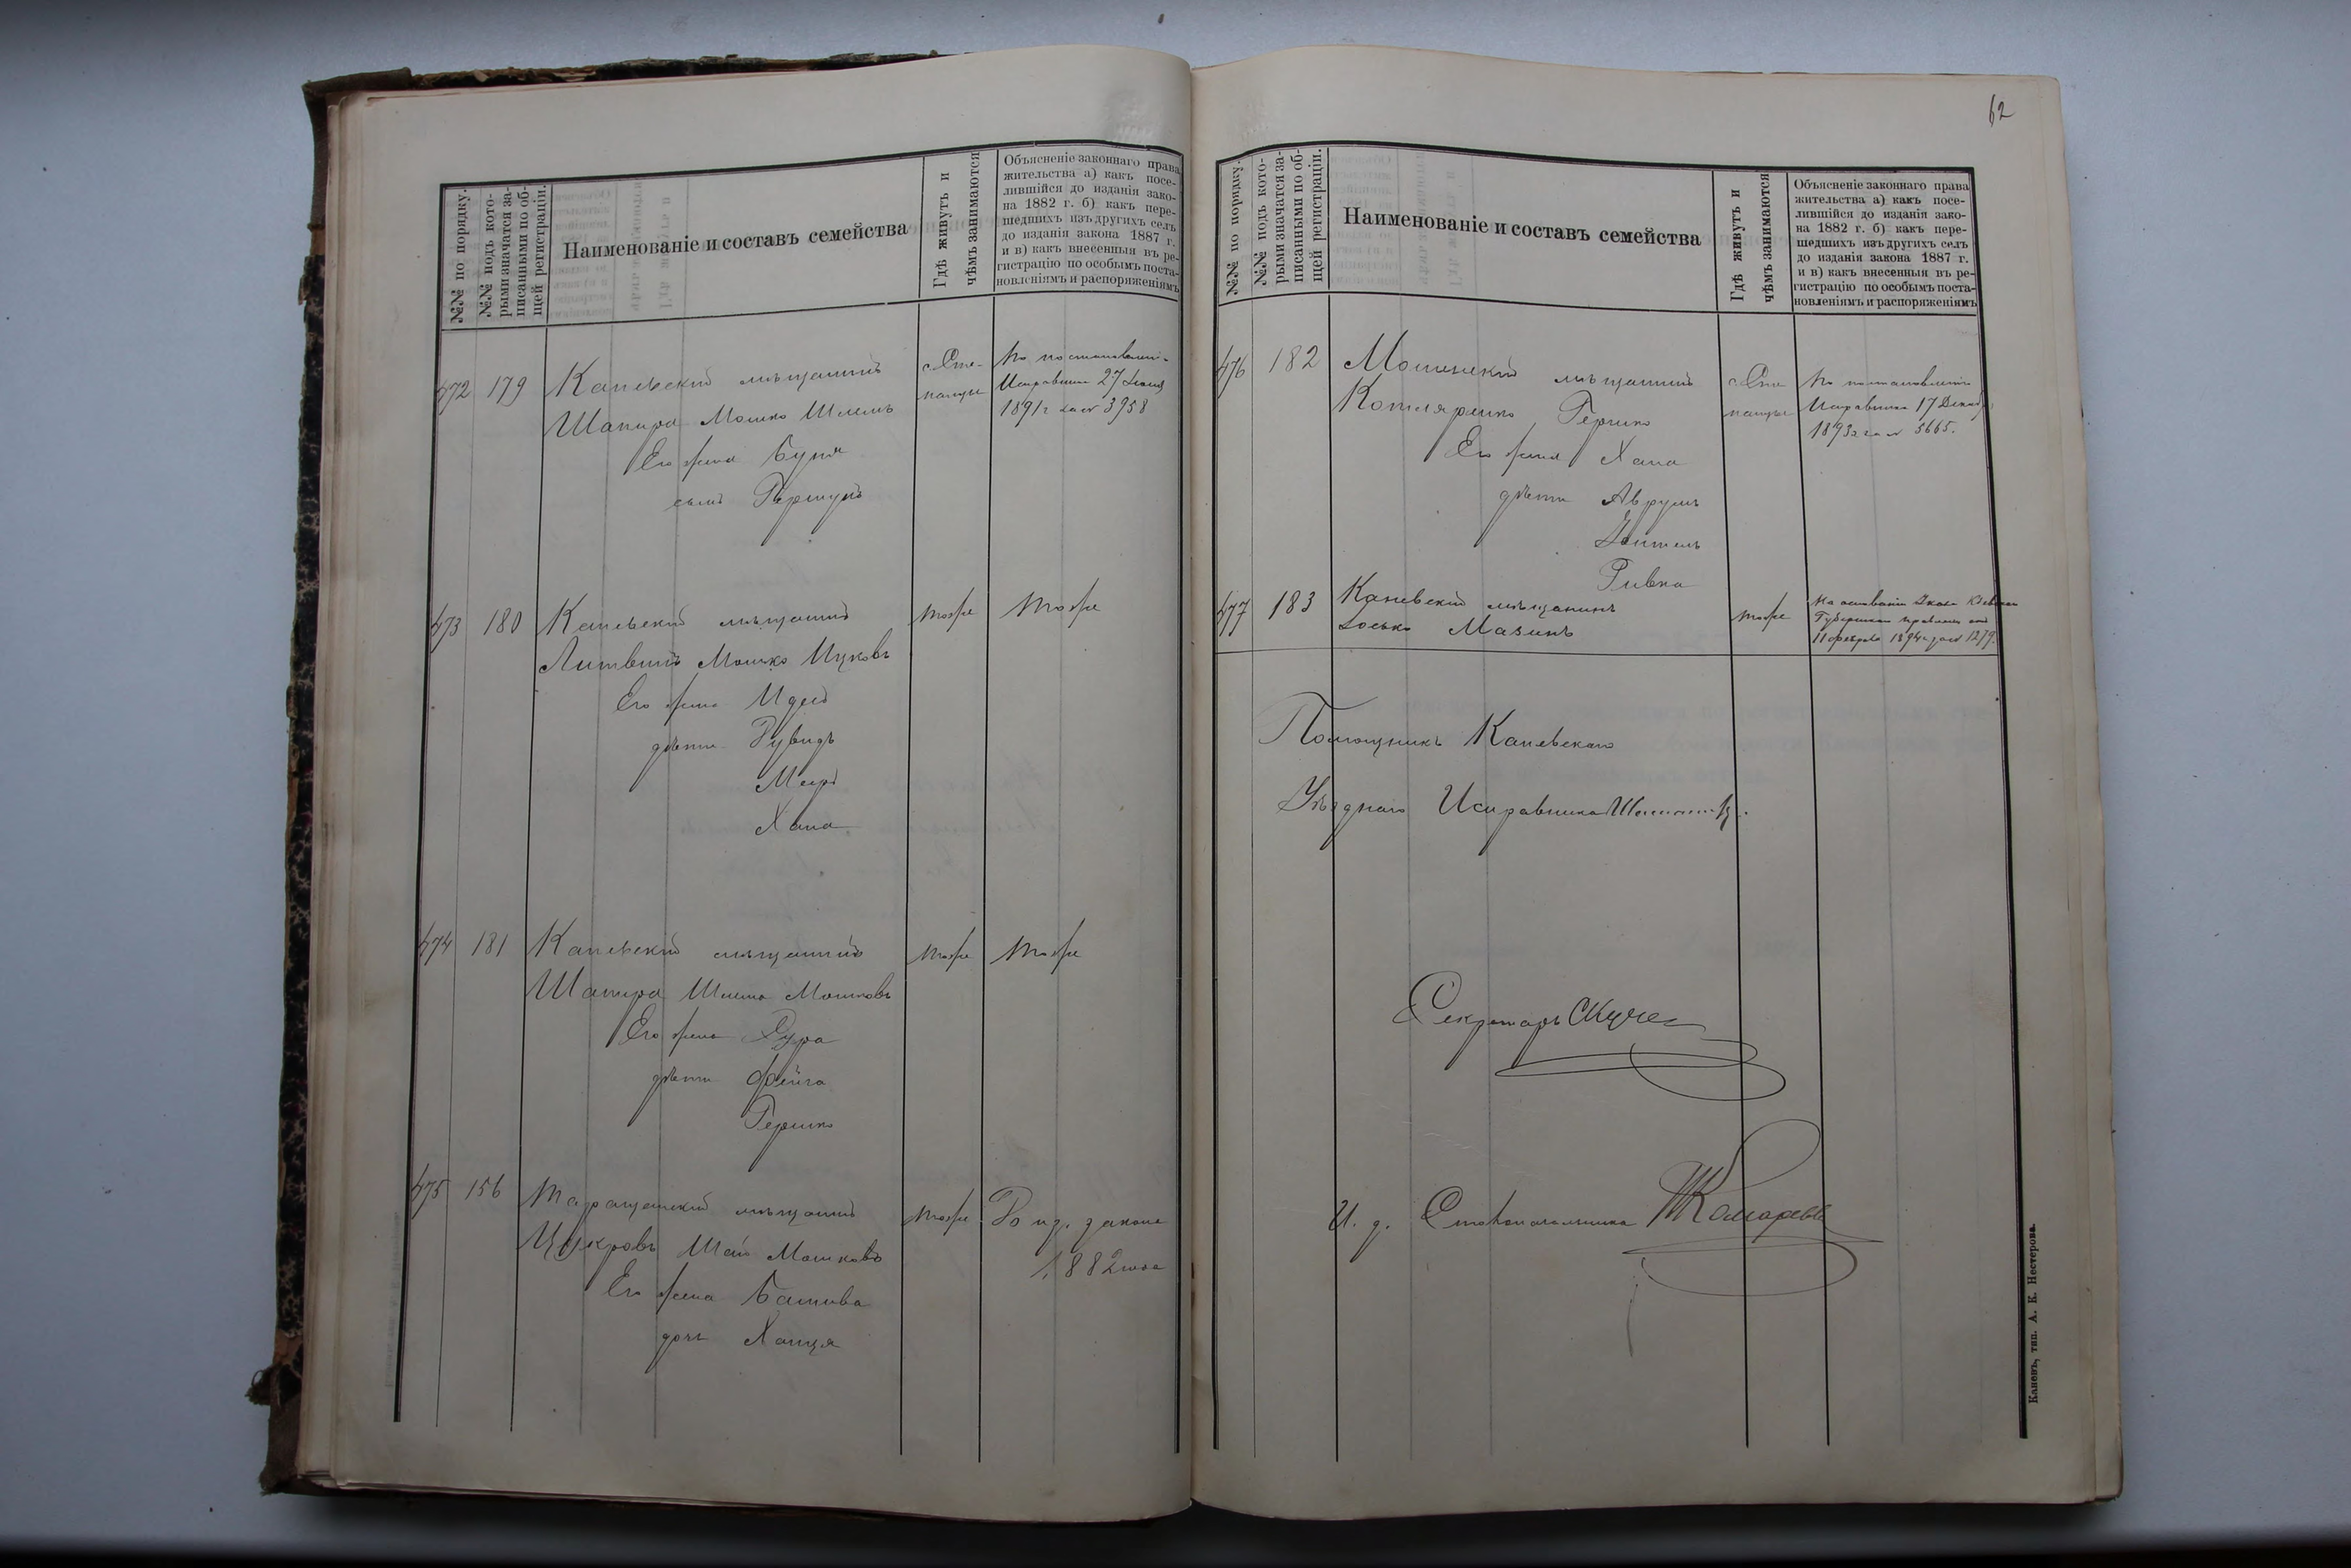 №№ по порядку.
№№ подъ кото-
рыми значатся за-
писанными по об-
щей регистраціи.
Наименованіе и составъ семейства
Гдѣ живутъ и
чѣмъ занимаются
Объясненіе законнаго права
жительства а) какъ посе-
лившійся до изданія зако-
на 1882 г. б) какъ пере-
шедшихъ изъ другихъ селъ
до изданія закона 1887 г.
и в) какъ внесенныя въ ре-
гистрацію по особымъ поста-
новленіямъ и распоряженіямъ
472 179 Каневскій мѣщанинъ
Шапира Мошко Шлемъ
Его жена Буня
сынъ Гершунъ
с. Сте-
панцы
По постановлені-
Исправника 27
1891 г за № 3958
473 180 Каневскій мѣщанинъ
Литвинъ Мошко Ицковъ
Его жена
дѣти Рувидъ
Меиръ
Хана
тоже тоже
474 181 Каневскій мѣщанинъ
Шапира Шлема Мошковъ
Его жена Сура
дѣти Фейга
Гершко
тоже тоже
475 156 Таращанскій мѣщанинъ
Цукровъ Шая Мошковъ
Его жена Башива
дочь Ханця
тоже До из. закона
1882 года
62
№№ по порядку.
№№ подъ кото-
рыми значатся за-
писанными по об-
щей регистраціи.
Наименованіе и составъ семейства
Гдѣ живутъ и
чѣмъ занимаются
Объясненіе законнаго права
жительства а) какъ посе-
лившійся до изданія зако-
на 1882 г. б) какъ пере-
шедшихъ изъ другихъ селъ
до изданія закона 1887 г.
и в) какъ внесенныя въ ре-
гистрацію по особымъ поста-
новленіямъ и распоряженіямъ
476 182 Мошенскій мѣщанинъ
Котляренко Гершко
Его жена Хана
дѣти Аврумъ
Зейтель
Ривка
с. Сте
панцы
По постановленію
Исправника 17 Декаб.
1893 г за № 5665.
477 183 Каневскій мѣщанинъ
Іосько Мазинъ
тоже
На основаніи Указа Кіевск
Губернскаго правлен отъ
11 февраля 1894 г за № 1279.
Помощникъ Каневскаго
Уѣзднаго Исправника
Секретарь
И. д. Столоначальника Комарев
Каневъ, тип. А. К. Нестерова.